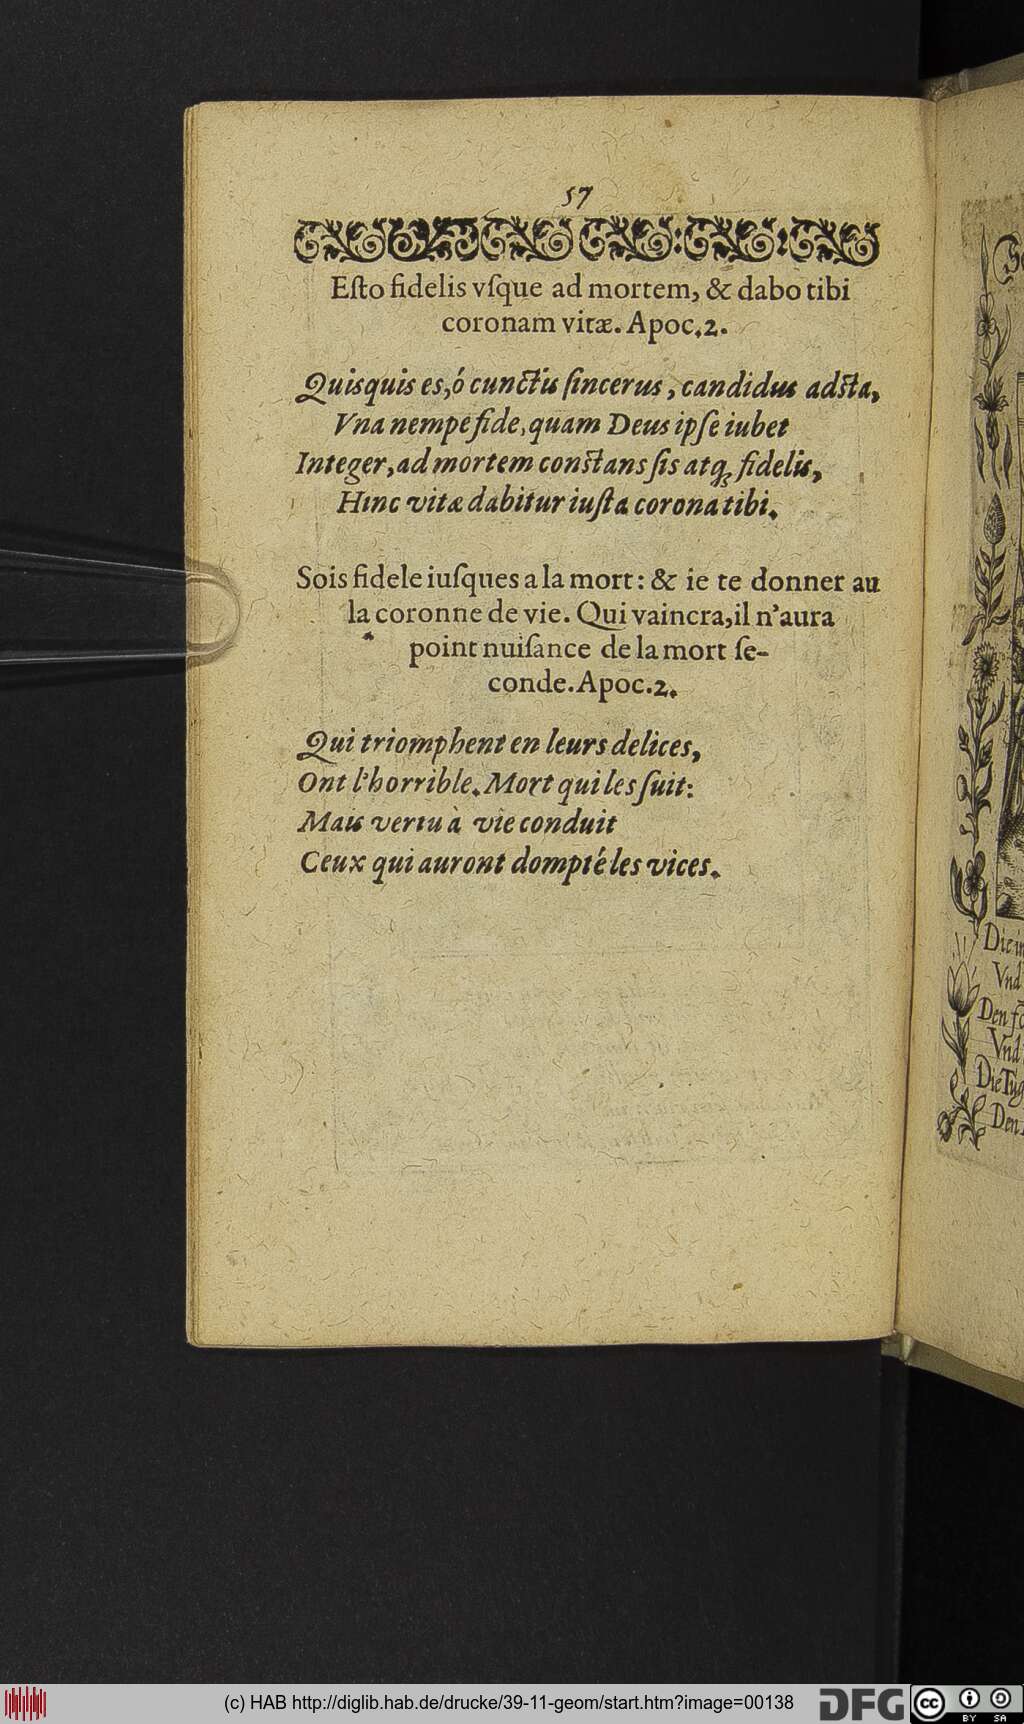 57
Eſto fidelis vſque ad mortem, & dabo tibi
coronam vitæ. Apoc. 2.
Quisquis es, ó cunctis ſincerus, candidus adſta,
Vna nempe fide, quam Deus ipſe iubet
Integer, ad mortem conſtans ſis atq; fidelis,
Hinc vitæ dabitur iuſta corona tibi.
Sois fidele iuſques a la mort: & ie te donner au
la coronne de vie. Qui vaincra, il n'aura
point nuiſance de la mort ſe-
conde. Apoc. 2.
Qui triomphent en leurs delices,
Ont l'horrible. Mort qui les ſuit:
Mais vertu à vie conduit
Ceux qui auront dompté les vices.
Die
Vnd
Den
Vnd
Die Tug
Den
(c) HAB http://diglib.hab.de/drucke/39-11-geom/start.htm?image=00138
DFG
cc
BY SA